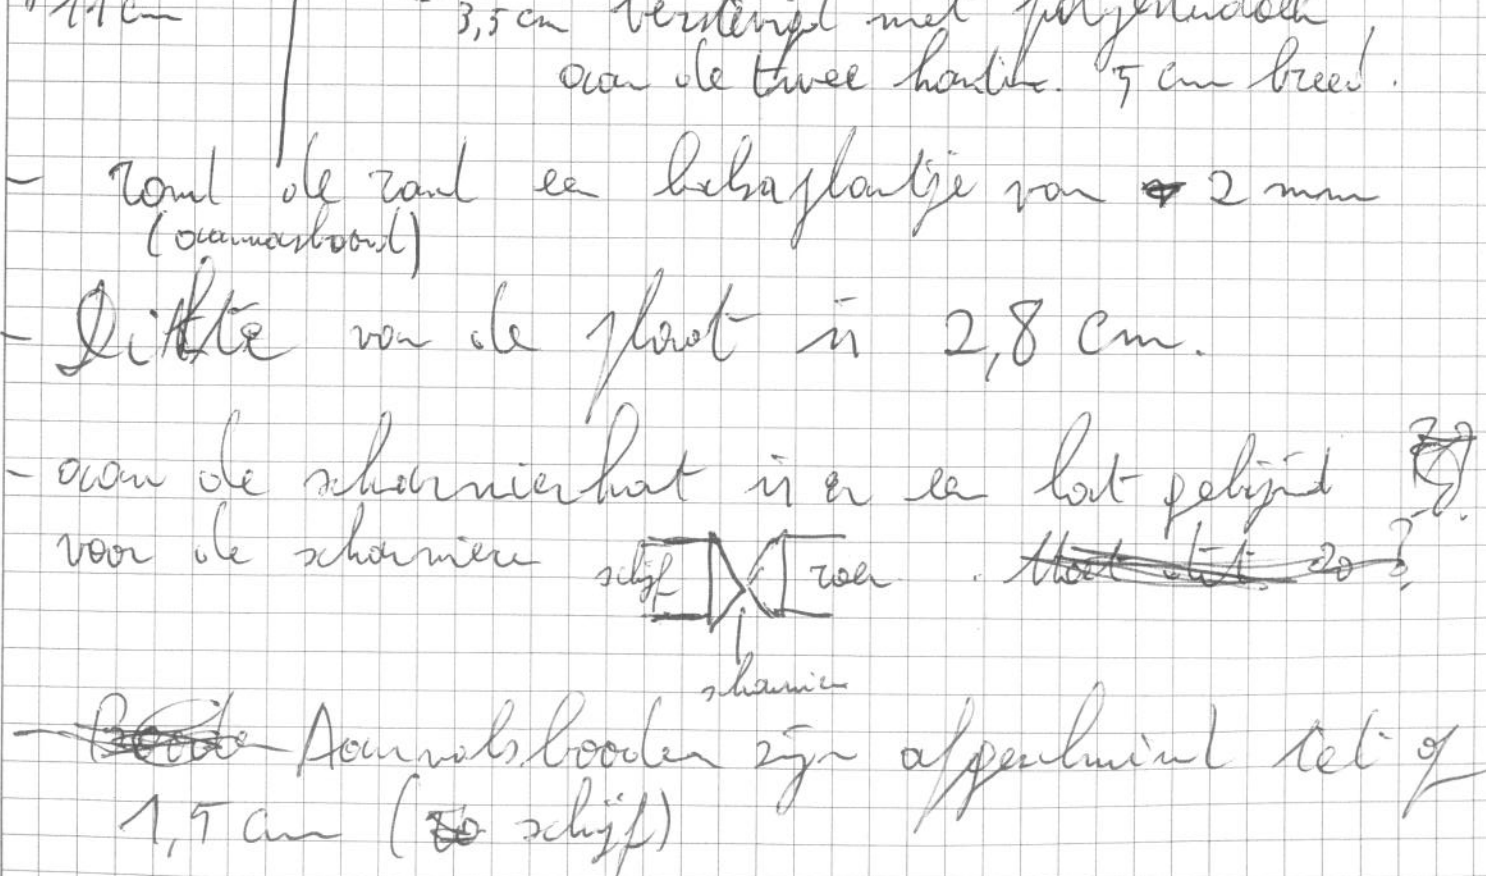 11 cm
3,5 cm verstevigd met polyesterdoek
aan de twee kanten. 5 cm breed.
- rond de rand een balsaplankje van 2 mm
(aanvalsboord)
- Dikte van de plaat is 2,8 cm.
- aan de scharnierkant is er een lat gelijmd
voor de scharnieren
schijf
roer
scharnier
- Aanvalsboorden zijn afgeschuind tot op
1,5 cm ( schijf)